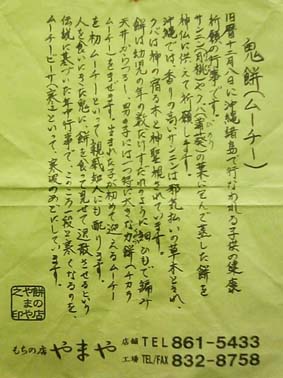 鬼餅(ムーチー)
旧暦十二月八日に沖縄諸島で行なわれる子供の健康
祈願の行事です。
サンニン(月桃)やクバ(蒲葵)の葉に包んで蒸した餅を
神仏に供えて祈願します。
沖縄では、香りの高いサンニンは邪気払いの草木とされ、
クバは神の宿る木と神聖視されています。
餅は幼児の年の数だけすだれのように細ひもで編み
天井からつるし、男の子には一つ特に大きな力餅(チカラ
ムーチー)をまぜます。生まれた子が初めて迎えるムーチー
を初ムーチーといって親戚知人にも配ります。
人を食いにきた鬼に餅を食って見せて退散させるという
伝説に基づいた年中行事で、このころ一段と寒くなるのを、
ムーチービーサ(寒さ)といって、寒波のめどにしています。
餅の店
やまや
之印
もちの店 やまや
店舗 TEL 861-5433
工場 TEL/FAX 832-8758